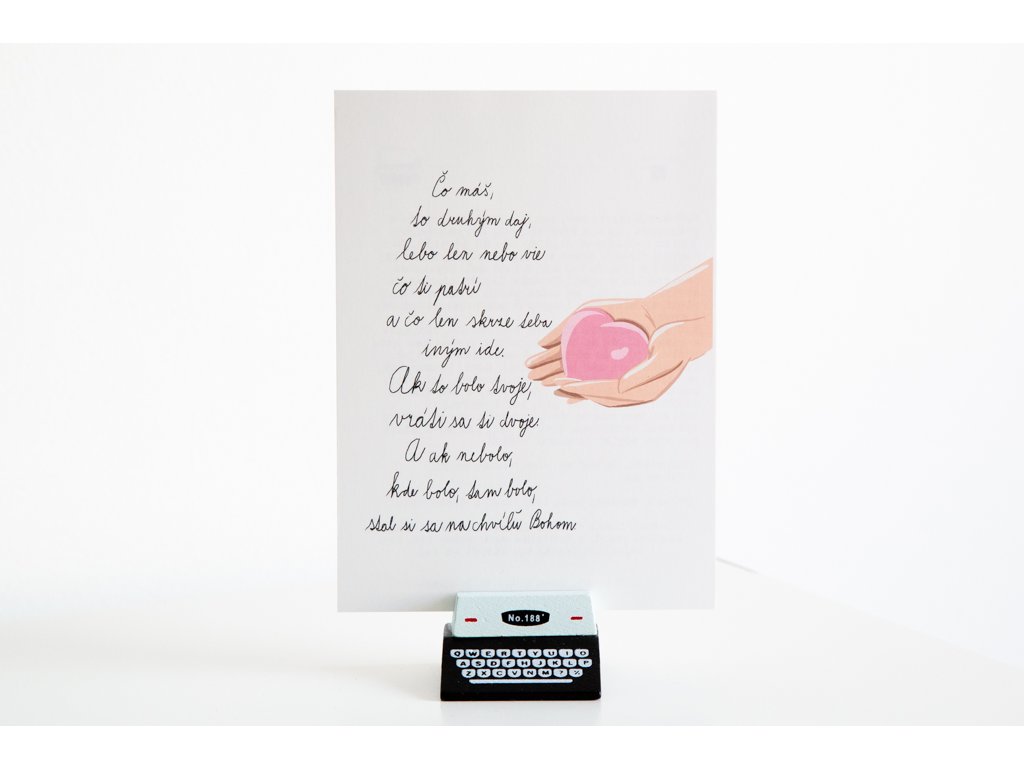 Čo máš,
to druhým daj,
lebo len nebo vie
čo ti patrí
a čo len skrze teba
iným ide.
Ak to bolo tvoje,
vráti sa ti dvoje.
A ak nebolo,
kde bolo, tam bolo,
stal si sa na chvíľu Bohom.
No.188'
QWERTYUIO
ASDFGHJKLP
ZXCVNM?%